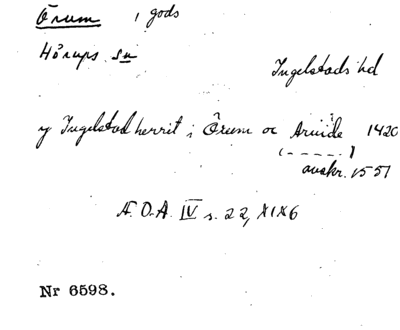 Örum , gods
Hörups sn
Ingelstads hd
y Ingelstad herrit i Örum oc Aruide 1420
(- - - - - -)
avskr. 1551
Æ.D.A. IV s. 22, XIX6
Nr 6598.